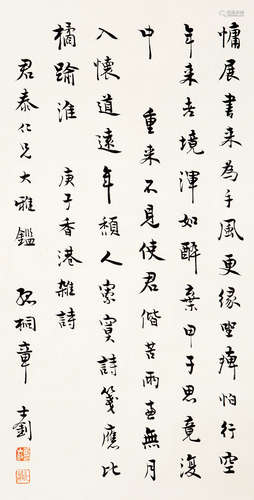 慵展書来為手風更緣痺怕行空
年来老境渾如醉棄甲于思竟復
中 重来不見使君偕苦雨無月
入懷道遠年頹人寂寞詩箋應比
橘踰淮 庚子香港雜詩
君泰仁兄大雅鑑 孤桐章士釗